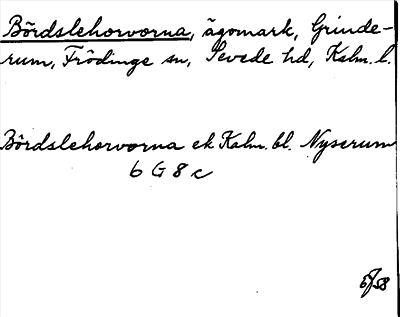 Bördslehorvorna, ägomark, Grinde-
rum, Frödinge sn, Sevede hd, Kalm. l.
Bördslehorvorna ek Kalm. bl. Nyserum
6 G 8 c
5/58